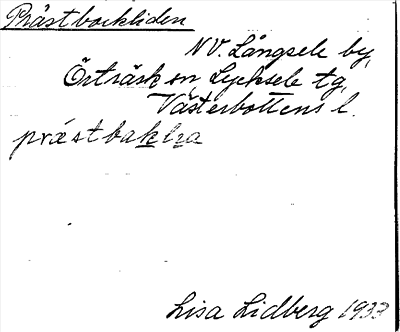 Prästbackliden
NV. Långsele by,
Örträsk sn, Lycksele tg,
Västerbottens l.
præstbaklıa
Lisa Lidberg 1933